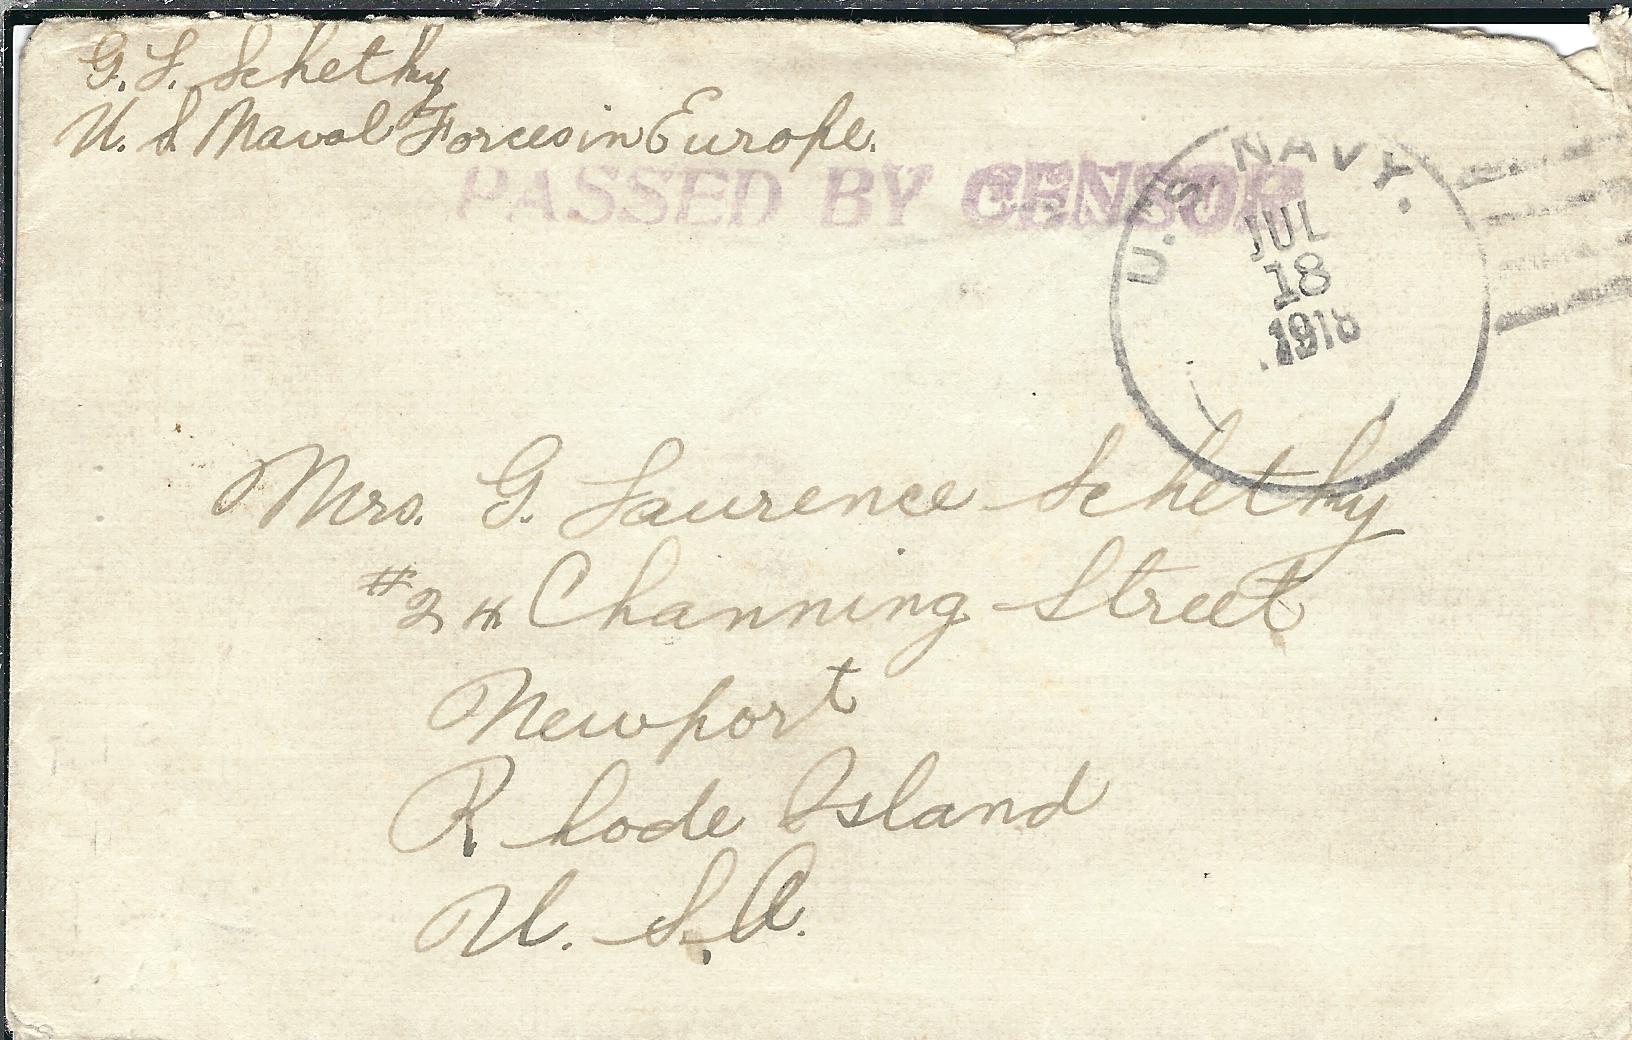 G. L. Schetky
U. S. Naval Forces in Europe.
PASSED BY CENSOR
U.S. NAVY.
JUL
18
1918
Mrs. G. Laurence Schetky
#24 Channing Street
Newport
Rhode Island
U. S. A.